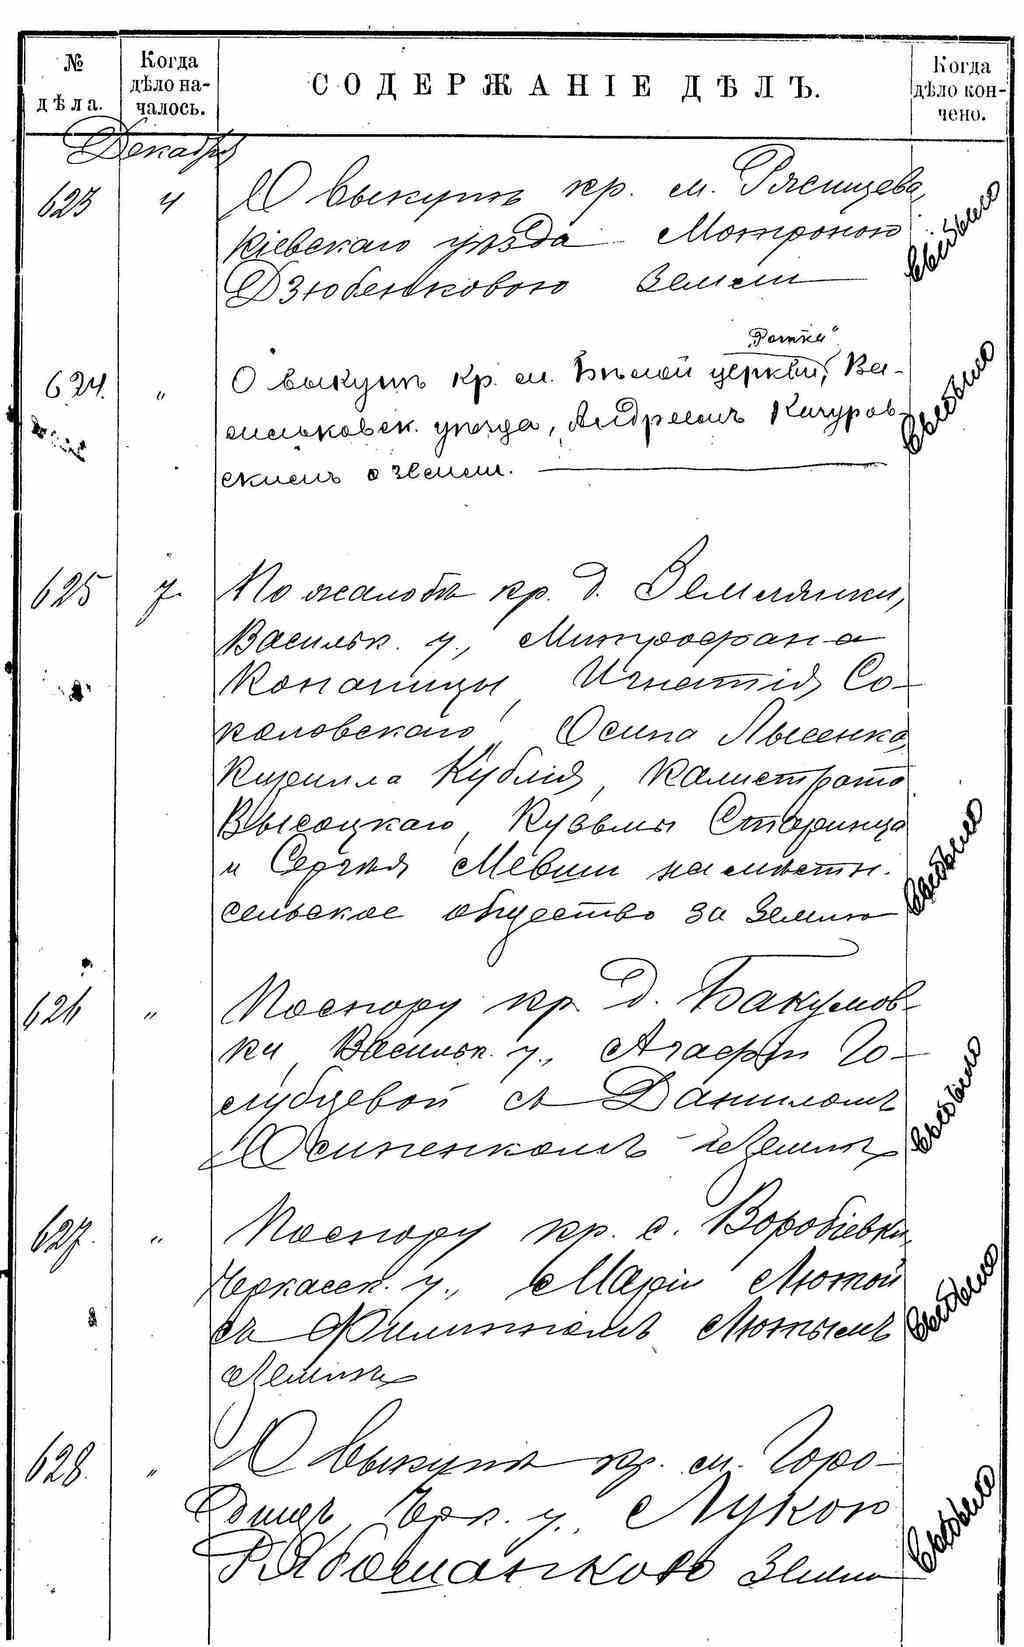 № дѣла.
Когда дѣло на-
чалось.
СОДЕРЖАНІЕ ДѢЛЪ.
Когда дѣло кон-
чено.
Декабря
623 4 О выкупѣ кр. м. Ржищева,
Кіевскаго уѣзда Мотроною
Дзюбенковою земли
выбыло
„Ротка"
624. „ О выкупѣ кр. м. Бѣлой церкви, Ва-
сильковск. уѣзда, Андреемъ Качуров-
скимъ о земли.
выбыло
625 7. По жалобѣ кр. д. Землянки,
Васильк. у., Митрофана
Конапицы, Игнатія Со-
коловскаго, Осипа Лысенка,
Кирилла Кублія, Калистрата
Высоцкаго, Кузьмы Старинца
и Сергѣя Мевши на мѣстн.
сельское общество за землю
выбыло
626 „ По спору кр. д. Бакумов-
ки, Васильк. у., Агафіи Го-
лубцевой съ Даниломъ
Осипенкомъ о землѣ
выбыло
627. „ По спору кр. с. Воробіевки,
Черкасск. у., Маріи Лютой
съ Филиппомъ Лютымъ
о землѣ
выбыло
628. „ О выкупѣ кр. м. Горо-
дища, Черк. у., Лукою
Рябошапкою земли
выбыло